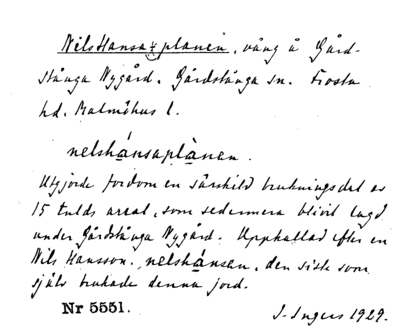 Nils Hansa planen, vång å Gård-
stånga Nygård. Gårdstånga sn. Frosta
hd. Malmöhus l.
nelshánsaplànen.
Utgjorde fordom en särskild brukningsdel av
15 tnlds areal, som sedermera blivit lagd
under Gårdstånga Nygård. Uppkallad efter en
Nils Hansson, nelshánsen, den siste som
själv brukade denna jord.
Nr 5551.
J. Ingers 1929.